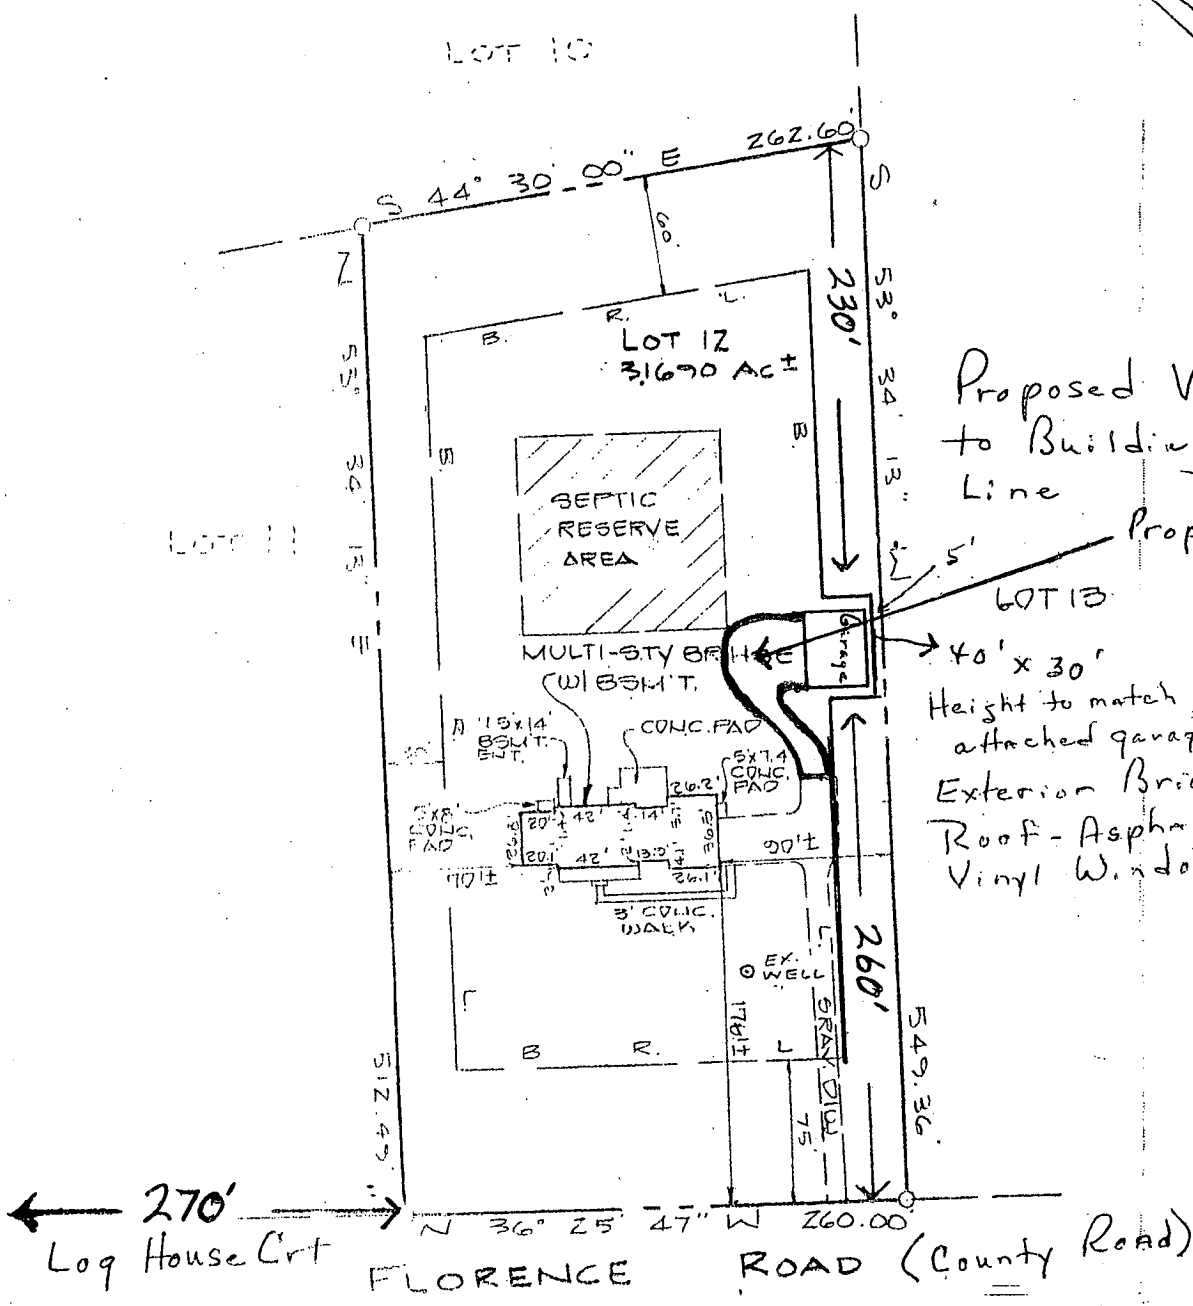 LOT 10
262.60'
S 44° 30' 00" E
60'
S 53° 34' 13" W
230'
B. R. L.
LOT 12
3.1690 AC ±
N 55° 34' 13" E
512.49'
B
B.
Proposed V
to Buildin
Line
Prop
5'
LOT 13
LOT 11
SEPTIC
RESERVE
AREA
Garage
40' x 30'
Height to match
attached garag
Exterior Bric
Roof - Aspha
Vinyl Windo
MULTI-STY BR HSE
(W/ BSM'T.
BSM'T.
ENT.
CONC. PAD
5x7.4
CONC.
PAD
CONC.
PAD
26.2'
20'
42'
14'
20.1'
42'
26.1'
90'±
3' CONC.
WALK
EX.
WELL
176'±
L
L.
GRAV. D/W
260'
549.36'
B R. L
75'
270'
Log House Crt
N 36° 25' 47" W 260.00'
FLORENCE ROAD (County Road)